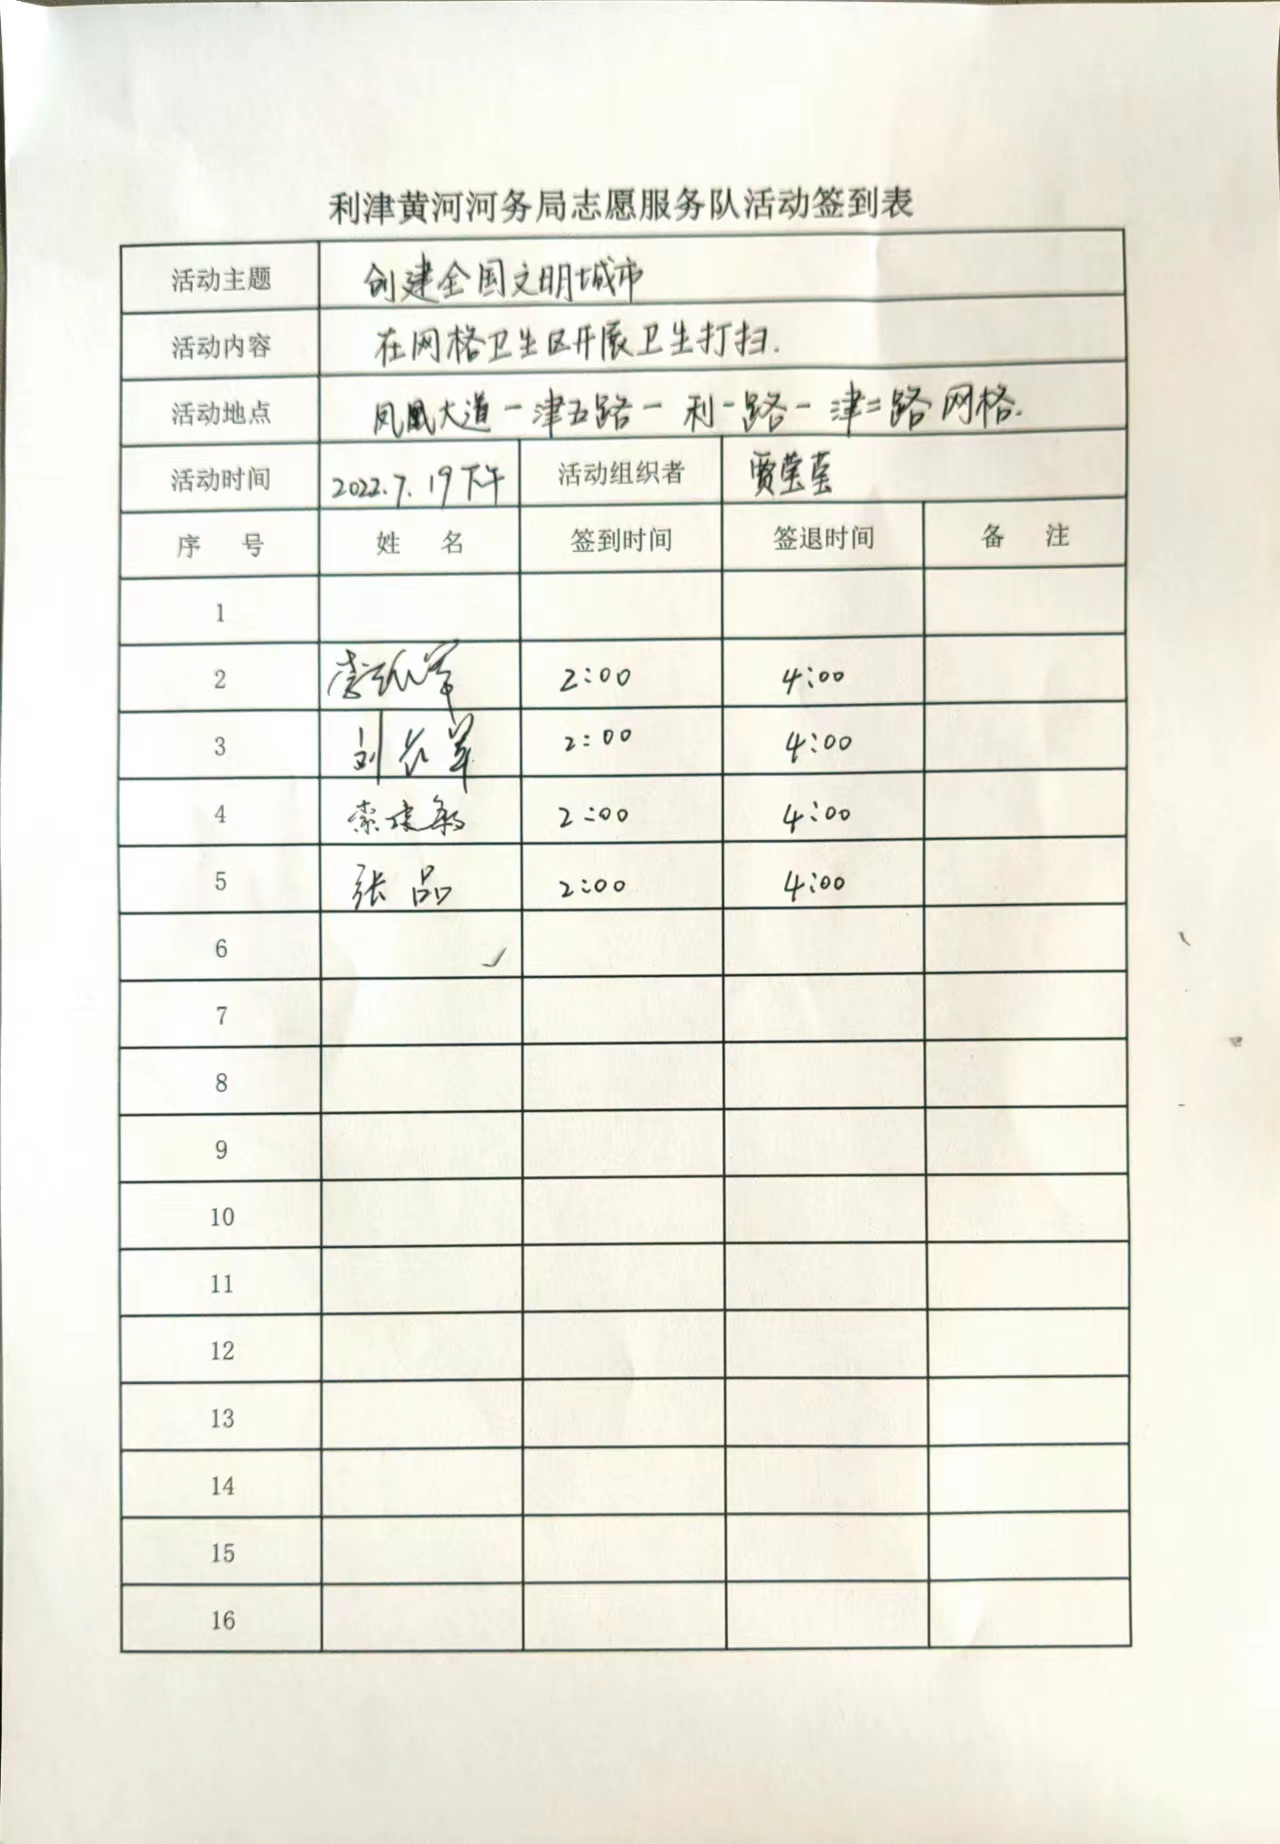 利津黄河河务局志愿服务队活动签到表
活动主题 创建全国文明城市
活动内容 在网格卫生区开展卫生打扫.
活动地点 凤凰大道一津五路一利一路一津二路网格.
活动时间 2022.7.19下午 活动组织者 贾莹莹
序 号 姓 名 签到时间 签退时间 备 注
1
2 2:00 4:00
3 刘 军 2:00 4:00
4 索建敏 2:00 4:00
5 张品 2:00 4:00
6
7
8
9
10
11
12
13
14
15
16